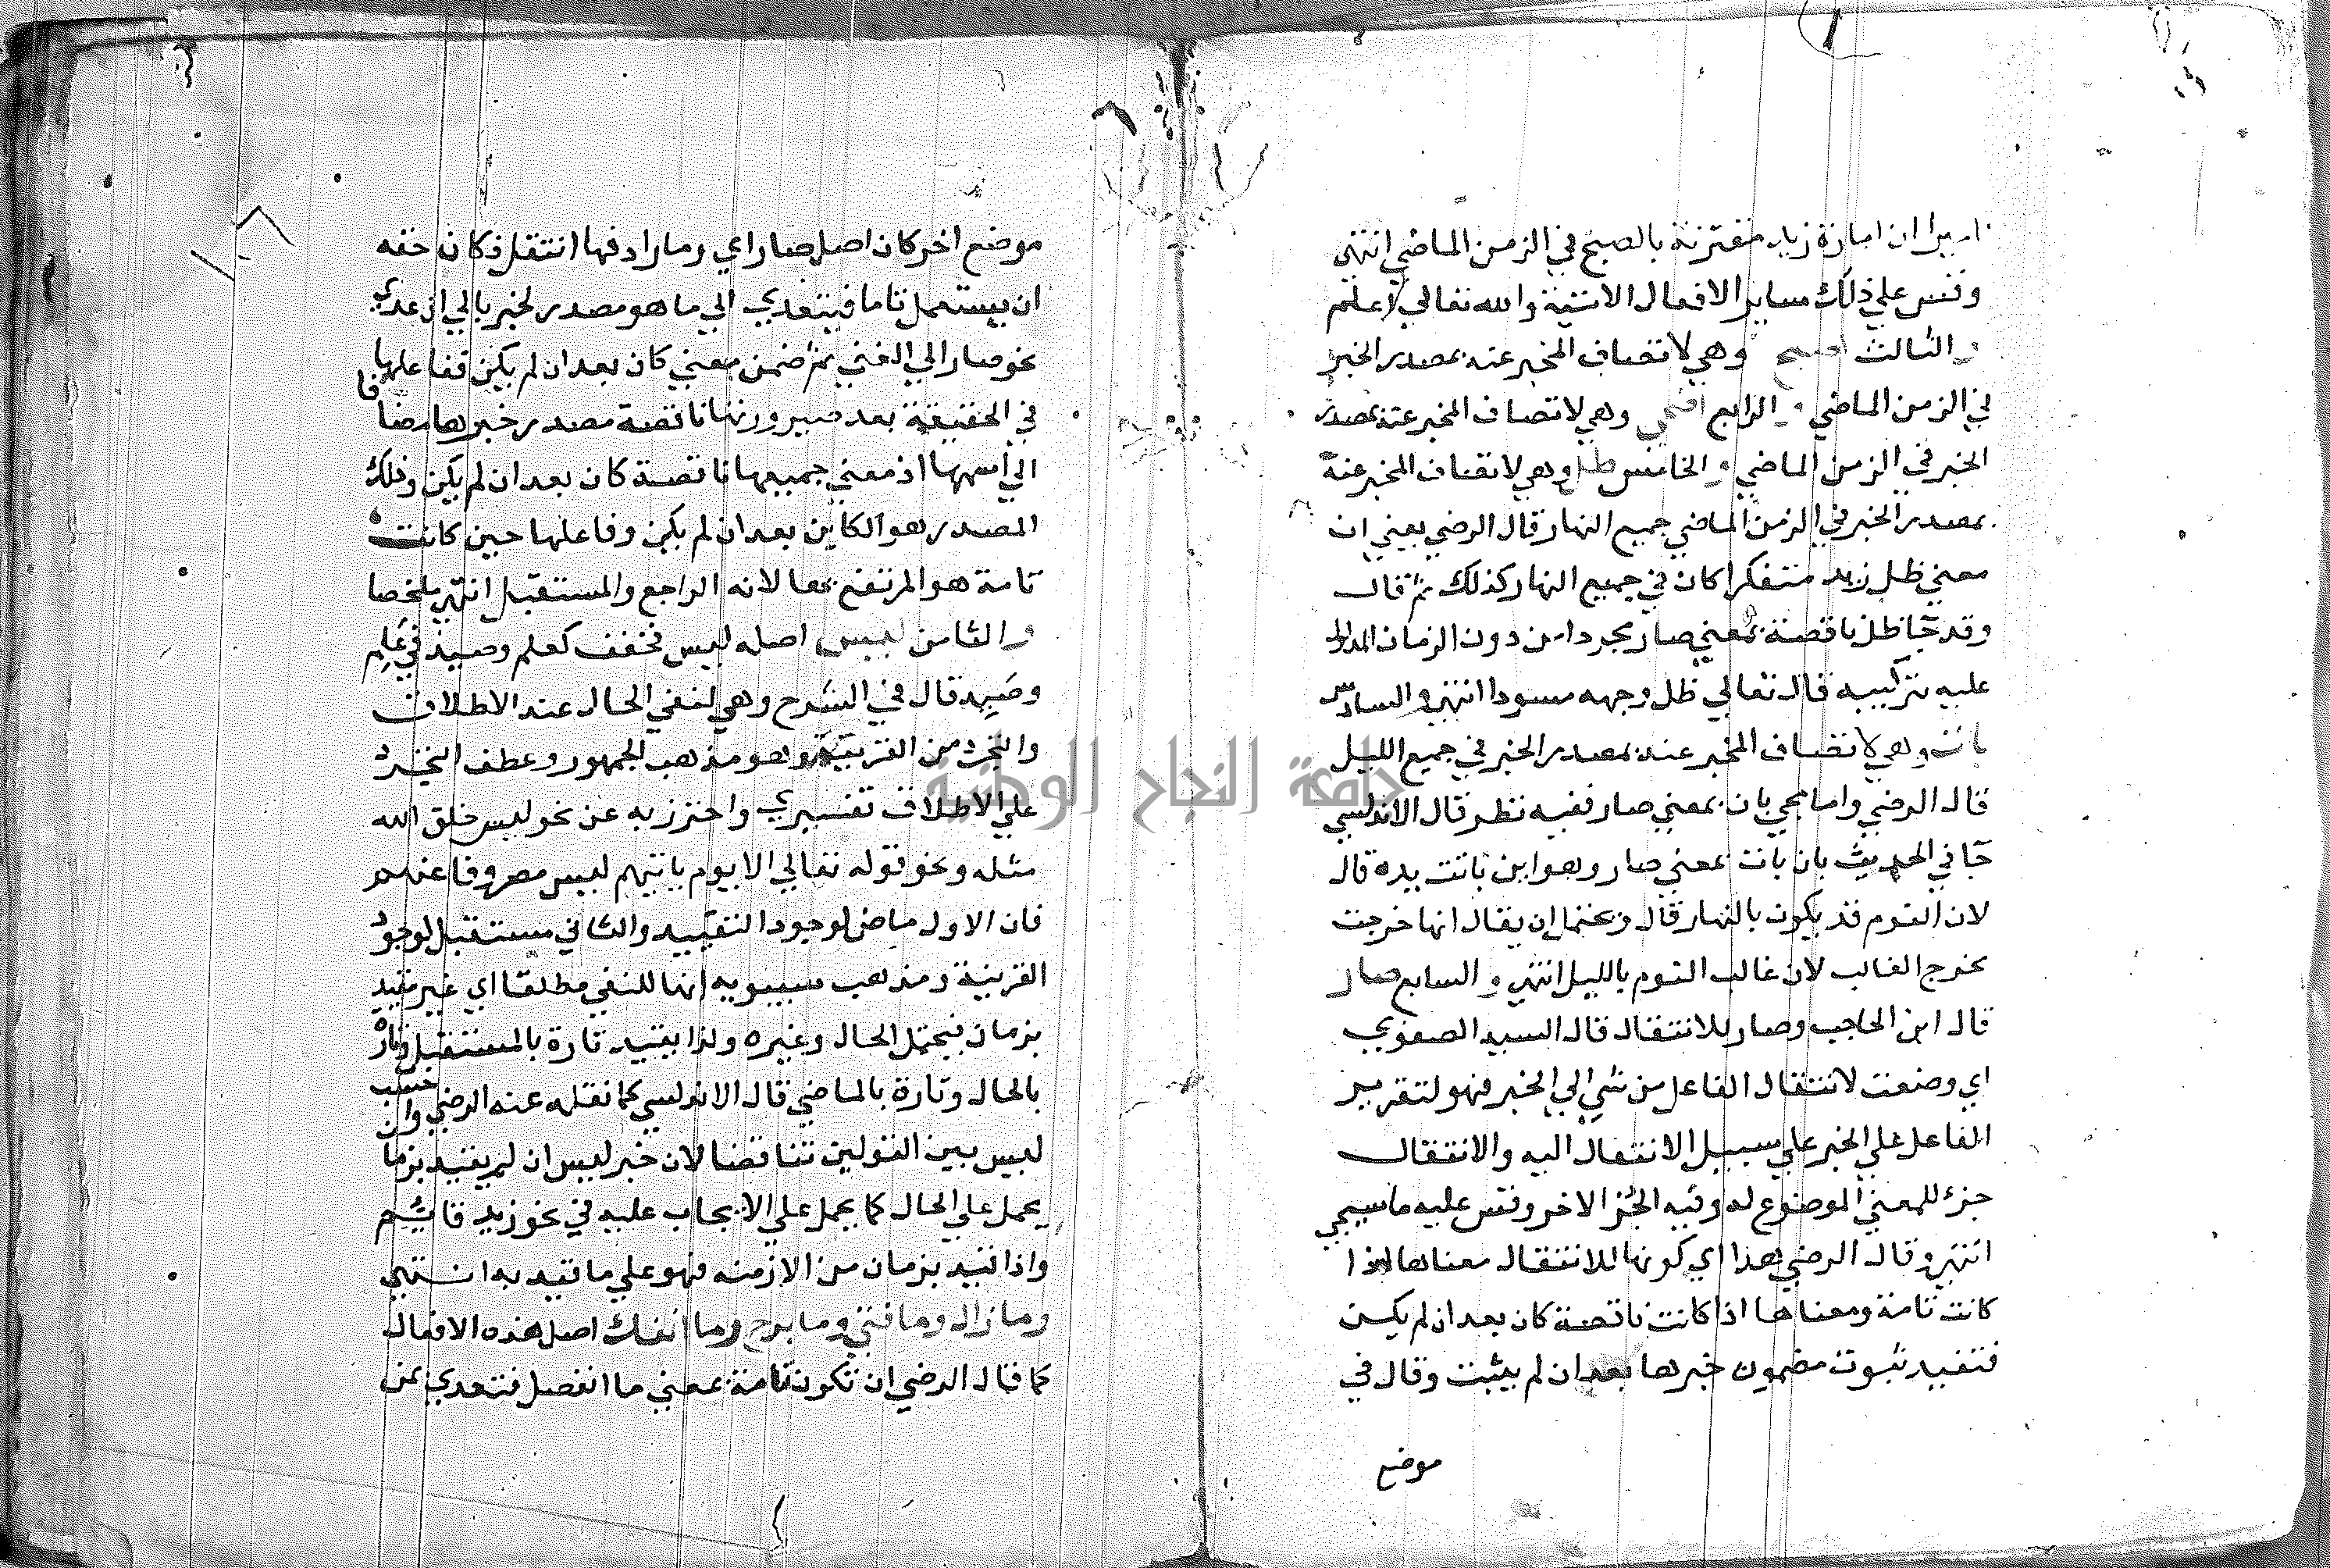 ان امارة زيد مقترنة بالصبح في الزمن الماضي انتهي
وقس علي ذلك ساير الافعال الاتية والله تعالي اعلم
و الثالث اصبح وهي لاتصاف المخبر عنه بمصدر الخبر
في الزمن الماضي و الرابع اضحى وهي لاتصاف المخبر عنه بمصدر
الخبر في الزمن الماضي و الخامس ظل وهي لاتصاف المخبر عنه
بمصدر الخبر في الزمن الماضي جميع النهار قال الرضي يعني ان
معني ظل زيد متفكرا كان في جميع النهار كذلك ثم قال
وقد جا ظل ناقصة بمعني صار مجردا من دون الزمان المدلول
عليه بتركيبه قال تعالي ظل وجهه مسودا انتهي و السادس
بات وهي لاتصاف المخبر عنه بمصدر الخبر في جميع الليل
قال الرضي واما مجي بات بمعني صار ففيه نظر قال الاندلسي
جا في الحديث بات بمعني صار وهو اين باتت يده قال
لان النوم قد يكون بالنهار قال ويحتمل ان يقال انها خرجت
مخرج الغالب لان غالب النوم بالليل انتهي و السابع صار
قال ابن الحاجب وصار للانتقال قال السيد الصفوي
اي وضعت لانتقال الفاعل من شي الي الخبر فهو لتقرير
الفاعل علي الخبر علي سبيل الانتقال اليه والانتقال
جزء للمعني الموضوع له وفيه الجز الاخر وقس عليه ما سيجي
انتهي وقال الرضي هذا اي كونها للانتقال معناها اذا
كانت تامة ومعناها اذا كانت ناقصة كان بعد ان لم يكن
فتفيد ثبوت مضمون خبرها بعد ان لم يثبت وقال في
موضع
موضع اخر كان اصل صار اعي وما رادفها انتقل فكان حقه
ان يستعمل تاما فيتعدي الي ما هو مصدر لخبر بالي ان عدي
نحو صار الي الغني ثم ضمن معني كان بعد ان لم يكن ففاعلها
في الحقيقة بعد صيرورتها ناقصة مصدر خبرها مضافا
الي اسمها اذ معني جميعها ناقصة كان بعد ان لم يكن وذلك
المصدر هو الكاين بعد ان لم يكن وفاعلها حين كانت
تامة هو المرتفع بها لانه الراجع والمستقبل انتهي ملخصا
و الثامن ليس اصله ليس مخفف كعلم وصيد في علم
وصيد قال في الشرح وهي لنفي الحال عند الاطلاق
والتجرد من القرينة وهو مذهب الجمهور وعطف التجرد
علي الاطلاق تفسيري واحترز به عن نحو ليس خلق الله
مثله ونحو قوله تعالي الا يوم ياتيهم ليس مصروفا عنهم
فان الاول ماض لوجود التقييد والثاني مستقبل لوجود
القرينة ومذهب سيبويه انها للنفي مطلقا اي غير مقيد
بزمان فيحتمل الحال وغيره ولذا يقيد تارة بالمستقبل وتارة
بالحال وتارة بالماضي قال الاندلسي كما نقله عنه الرضي وا حسب ان
ليس بين القولين تناقضا لان خبر ليس ان لم يقيد بزمان
يحمل علي الحال كما يحمل علي الايجاب عليه في نحو زيد قائم
واذا قيد بزمان من الازمنه فهو علي ما قيد به انتهي
وما زال وما فتي وما برح وما انفك اصل هذه الافعال
كما قال الرضي ان تكون تامة بمعني ما انفصل فتعدي بمن
جامعة النجاح الوطنية